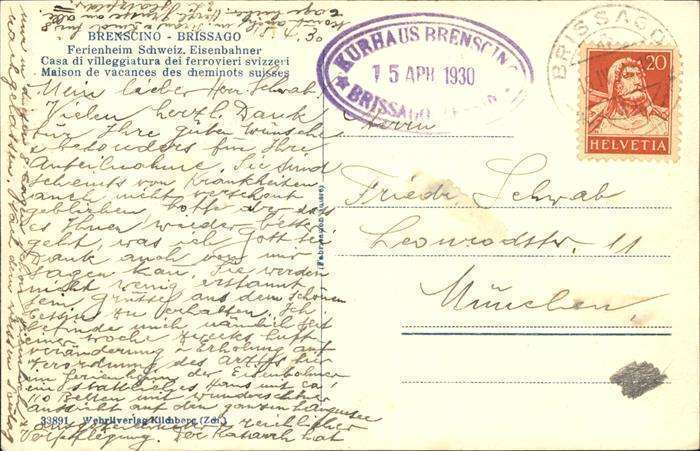 BRENSCINO - BRISSAGO
Ferienheim Schweiz. Eisenbahner
Casa di villeggiatura dei ferrovieri svizzeri
Maison de vacances des cheminots suisses
15. 4. 30
KURHAUS BRENSCINO
15 APR 1930
BRISSAGO
BRISSAGO
20
HELVETIA
Mein lieber Herr Schwab,
Vielen herzl. Dank
für Ihre guten Wünsche
besonders für Ihre
Anteilnahme. Sie sind
scheints von Krankheiten
auch nicht verschont
geblieben, hoffe aber dass
es Ihnen wieder besser
geht, was ich Gott sei
Dank auch von mir
sagen kan. Sie werden
nicht wenig erstaunt
sein, Grüsse aus dem schönen
Tessin zu erhalten. Ich
befinde mich nämlich seit
einer Woche zwecks Luft-
veränderung & Erholung auf
Verordnung des Arztes hier
im Ferienheim der Eisenbahner
ein stattliches Haus mit ca.
110 Betten mit wunderschöner
Aussicht auf den ganzen Langensee
& reichlicher
Verpflegung. Der Katarrh hat
Herrn
Friedr. Schwab
Leonrodstr. 11
München
33891 Wehrliverlag Kilchberg (Zch.)